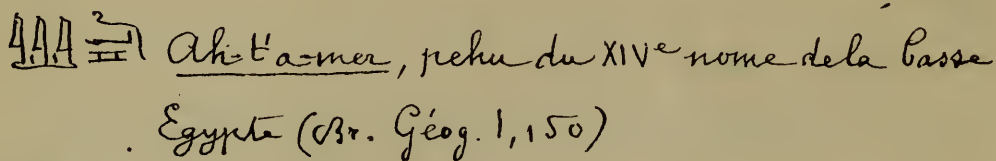 Ah-t'a-mer, pehu du XIVe nome de la basse
Egypte (Br. Géog. I, 150)